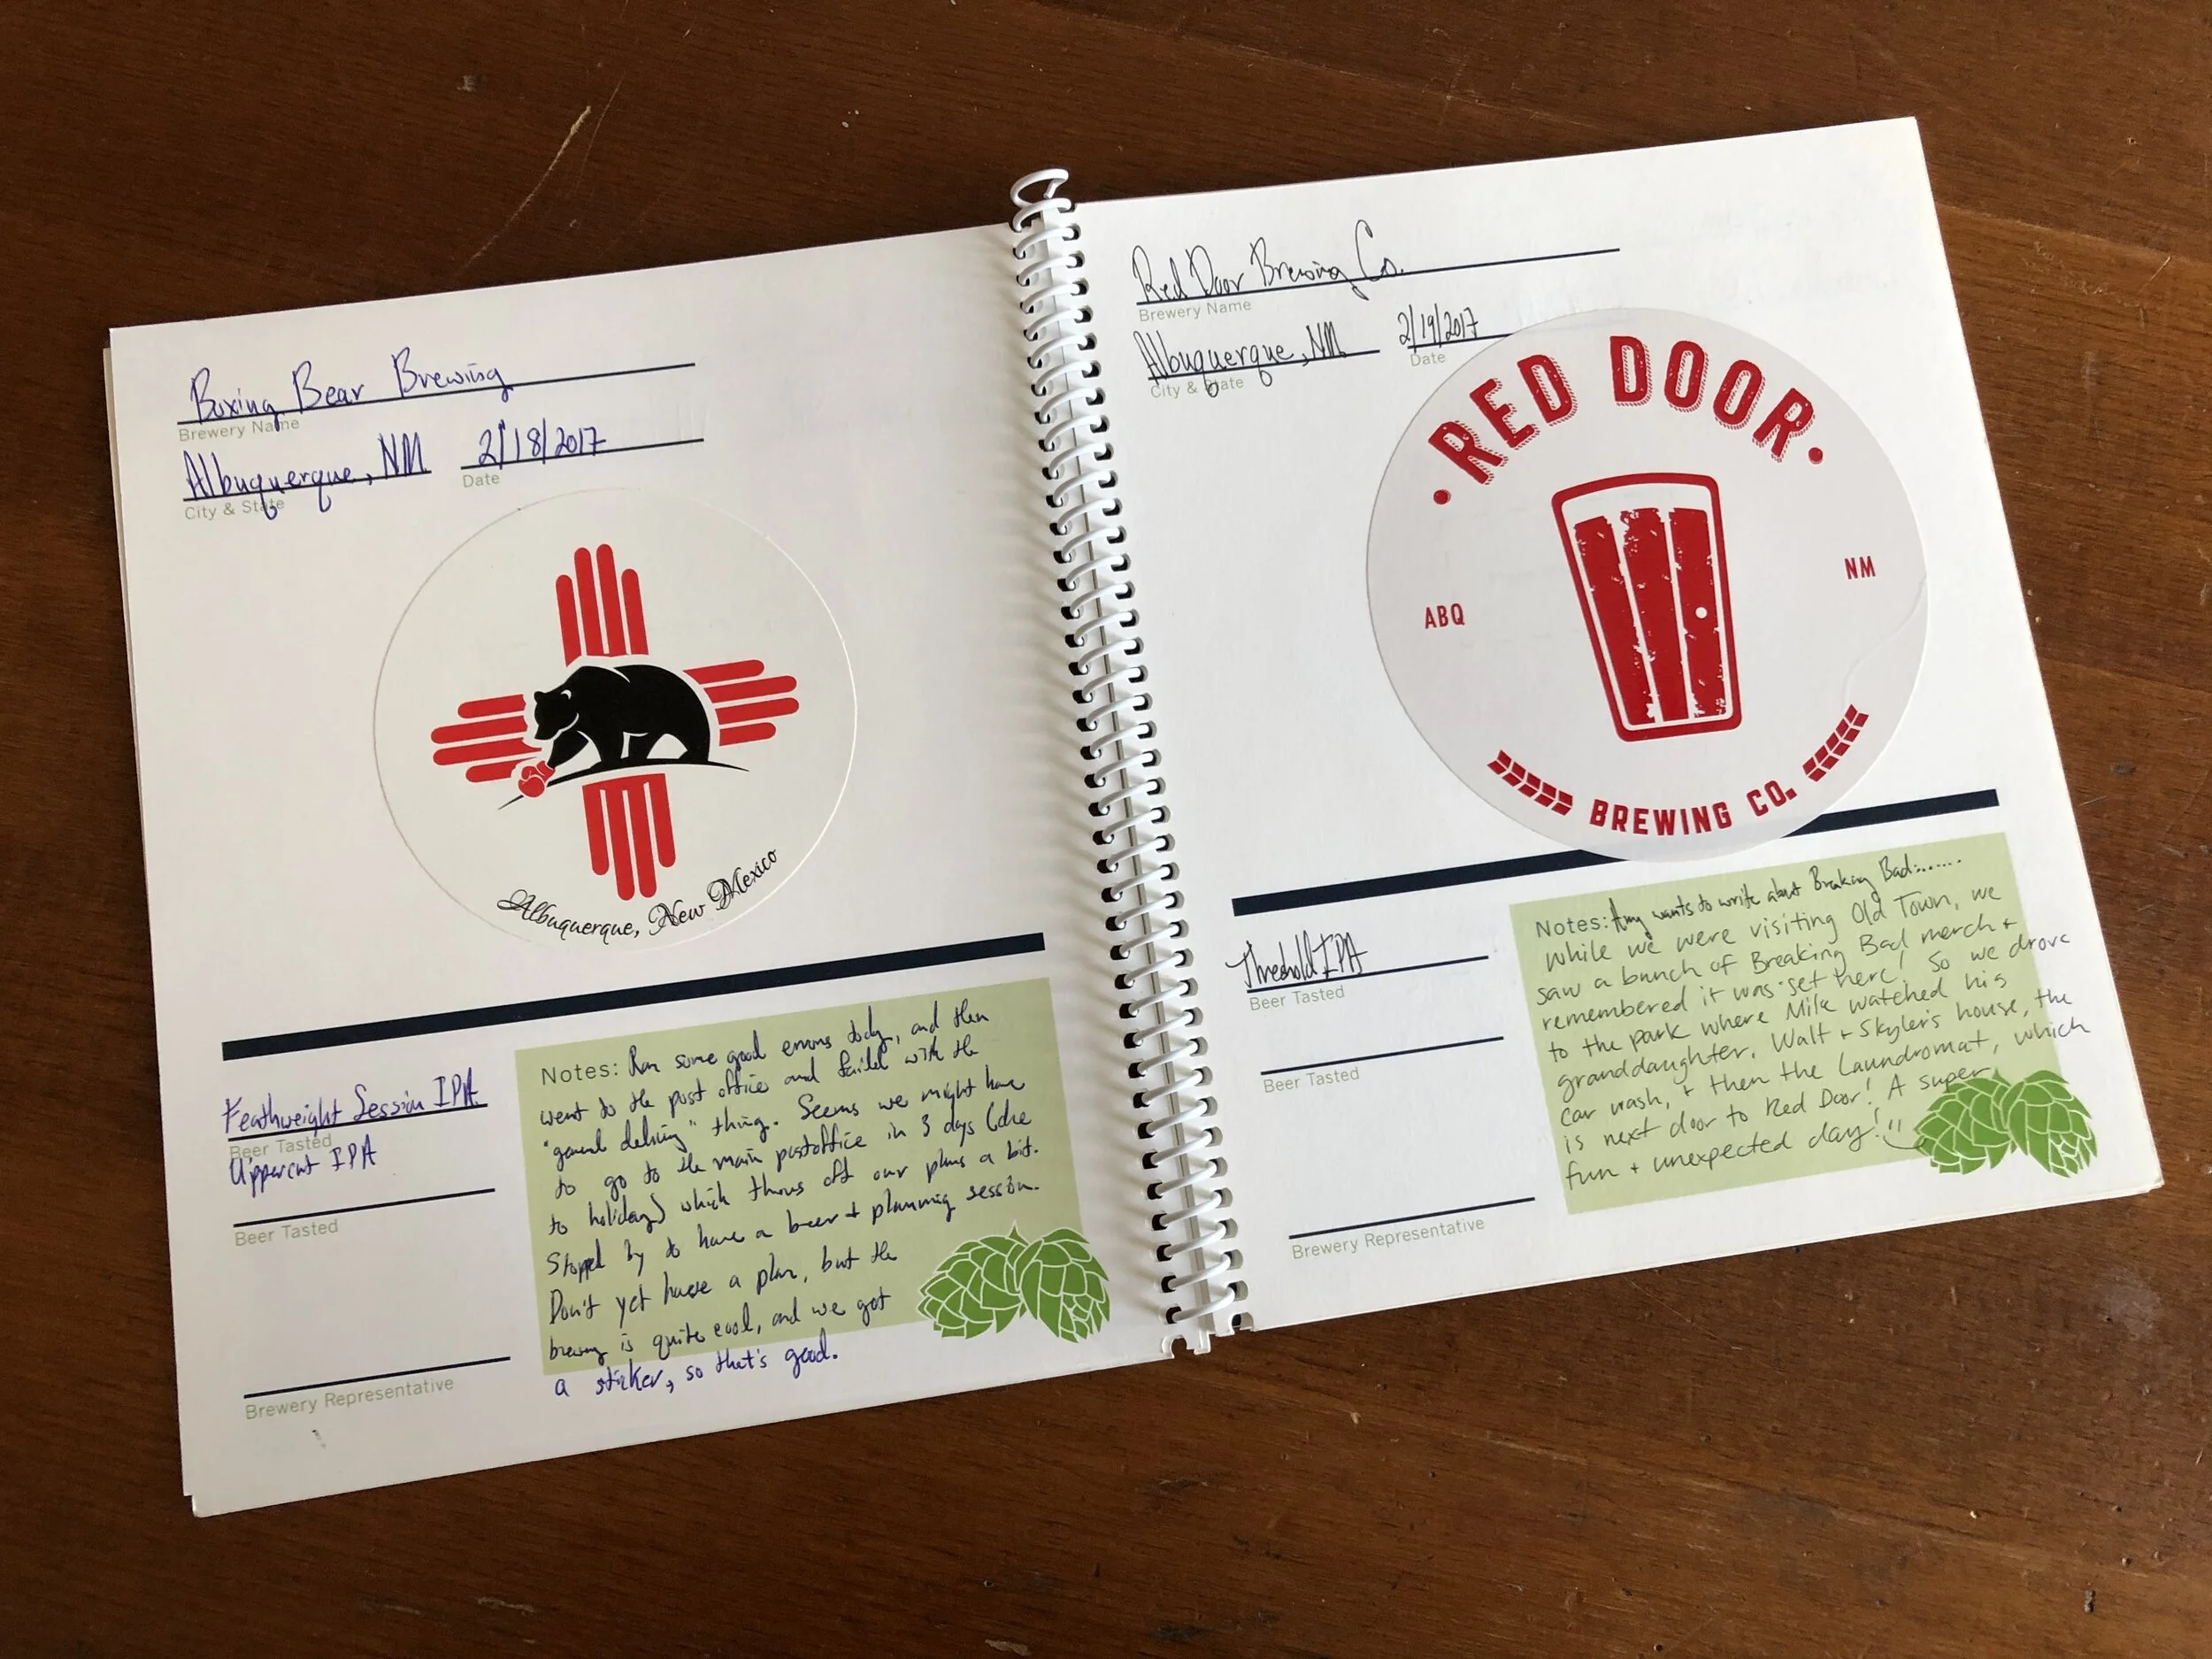 Boxing Bear Brewing
Brewery Name
Albuquerque, NM 2/18/2017
City & State Date
Albuquerque, New Mexico
Feathweight Session IPA
Beer Tasted
Uppercut IPA
Beer Tasted
Brewery Representative
Notes: Ran some good errans today, and then
went to the post office and failed with the
"general delivery" thing. Seems we might have
to go to the main postoffice in 3 days (due
to holiday) which throws off our plans a bit.
Stopped by to have a beer + planning session.
Don't yet have a plan, but the
brewing is quite cool, and we got
a sticker, so that's good.
Red Door Brewing Co.
Brewery Name
Albuquerque, NM 2/19/2017
City & State Date
• RED DOOR •
ABQ NM
BREWING CO.
Threshold IPA
Beer Tasted
Beer Tasted
Brewery Representative
Notes: Amy wants to write about Breaking Bad:......
While we were visiting Old Town, we
saw a bunch of Breaking Bad merch +
remembered it was set here! So we drove
to the park where Mike watched his
granddaughter, Walt + Skyler's house, the
car wash, + then the Laundromat, which
is next door to Red Door! A super
fun + unexpected day!!